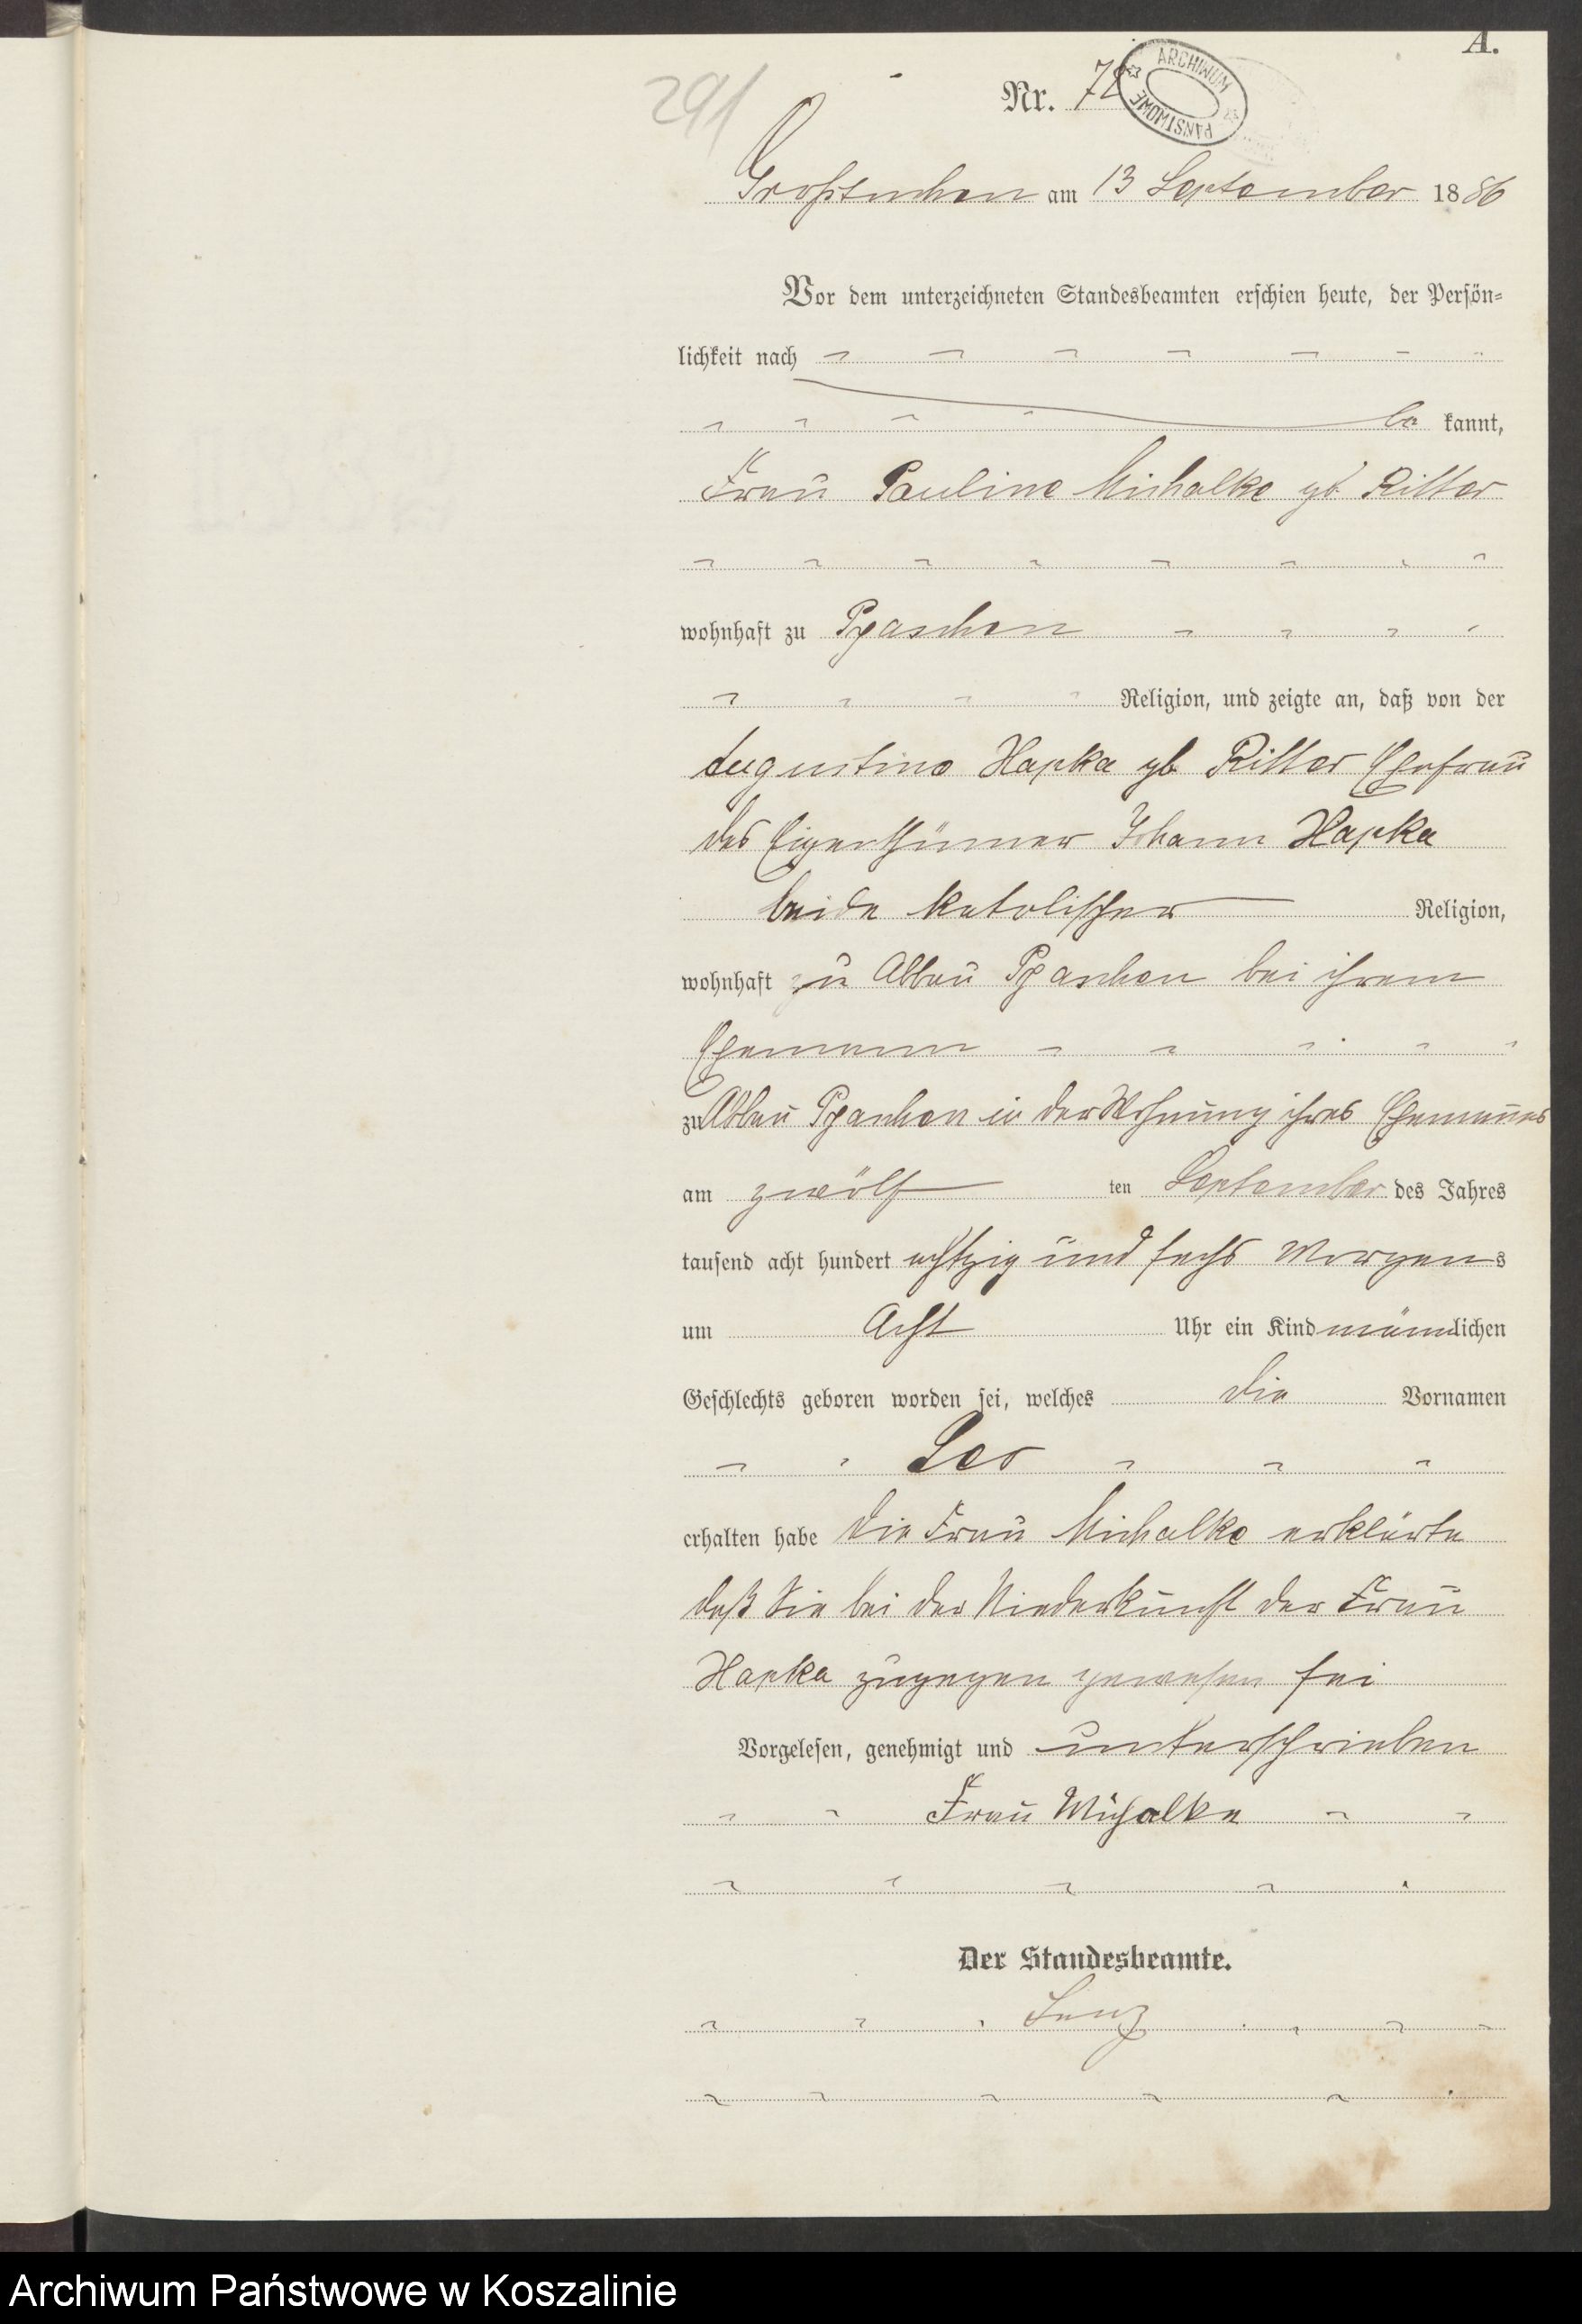 A.
291
Nr. 72
ARCHIWUM PAŃSTWOWE
Großtuchen am 13 September 1886
Vor dem unterzeichneten Standesbeamten erschien heute, der Persön-
lichkeit nach
be kannt,
Frau Pauline Michalke gb Ritter
wohnhaft zu Pyaschen
Religion, und zeigte an, daß von der
Augustine Hapka gb Ritter Ehefrau
des Eigenthümer Johann Hapka
beide katolischer Religion,
wohnhaft zu Abbau Pyaschen bei ihrem
Ehemann
zu Abbau Pyaschen in der Wohnung ihres Ehemannes
am zwölf ten September des Jahres
tausend acht hundert achtzig und sechs Morgens
um Acht Uhr ein Kind männlichen
Geschlechts geboren worden sei, welches die Vornamen
Leo
erhalten habe die Frau Michalke erklärte
daß Sie bei der Niederkunft der Frau
Hapka zugegen gewesen sei
Vorgelesen, genehmigt und unterschrieben
Frau Michalke
Der Standesbeamte.
Lenz
Archiwum Państwowe w Koszalinie